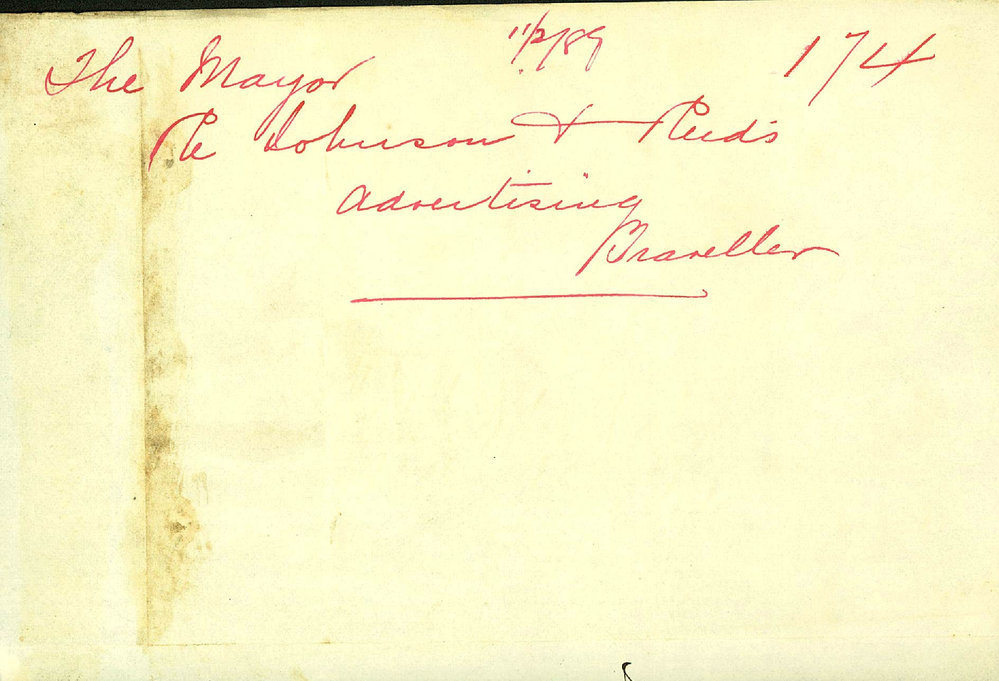 The Mayor 11/2/89 174
Re Johnson & Reid's
Advertising
Traveller